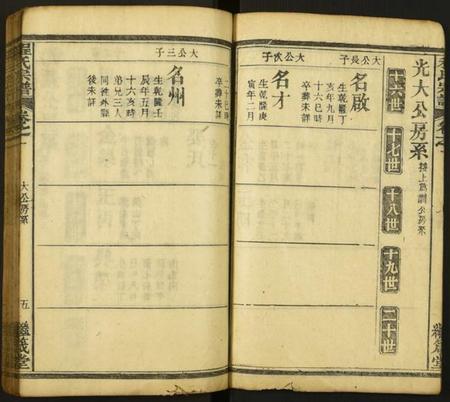 光大公房系
接上爲訓公房系
十六世
十七世
十八世
十九世
二十世
大公長子
名啟
生乾隆丁
亥年九月
十六巳時
卒葬未詳
大公次子
名才
生乾隆庚
寅年二月
二十七巳時
卒葬未詳
大公三子
名州
生乾隆壬
辰年五月
十六亥時
弟兄三人
同徃外
後未詳
氏宗譜
卷之一
大公房系
五
繼義堂